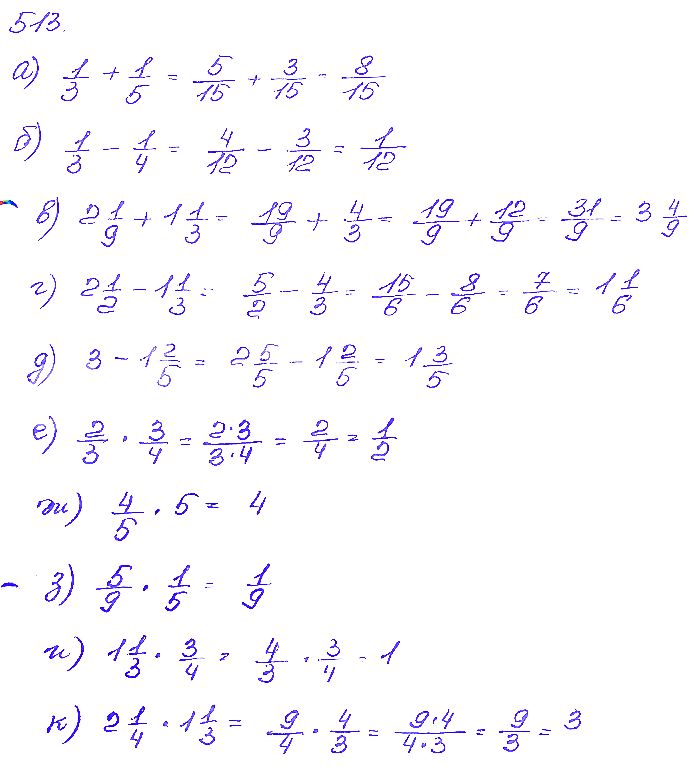 513.
а) 1/3 + 1/5 = 5/15 + 3/15 = 8/15
б) 1/3 - 1/4 = 4/12 - 3/12 = 1/12
в) 2 1/9 + 1 1/3 = 19/9 + 4/3 = 19/9 + 12/9 = 31/9 = 3 4/9
г) 2 1/2 - 1 1/3 = 5/2 - 4/3 = 15/6 - 8/6 = 7/6 = 1 1/6
д) 3 - 1 2/5 = 2 5/5 - 1 2/5 = 1 3/5
е) 2/3 · 3/4 = 2·3/3·4 = 2/4 = 1/2
ж) 4/5 · 5 = 4
з) 5/9 · 1/5 = 1/9
и) 1 1/3 · 3/4 = 4/3 · 3/4 = 1
к) 2 1/4 · 1 1/3 = 9/4 · 4/3 = 9·4/4·3 = 9/3 = 3